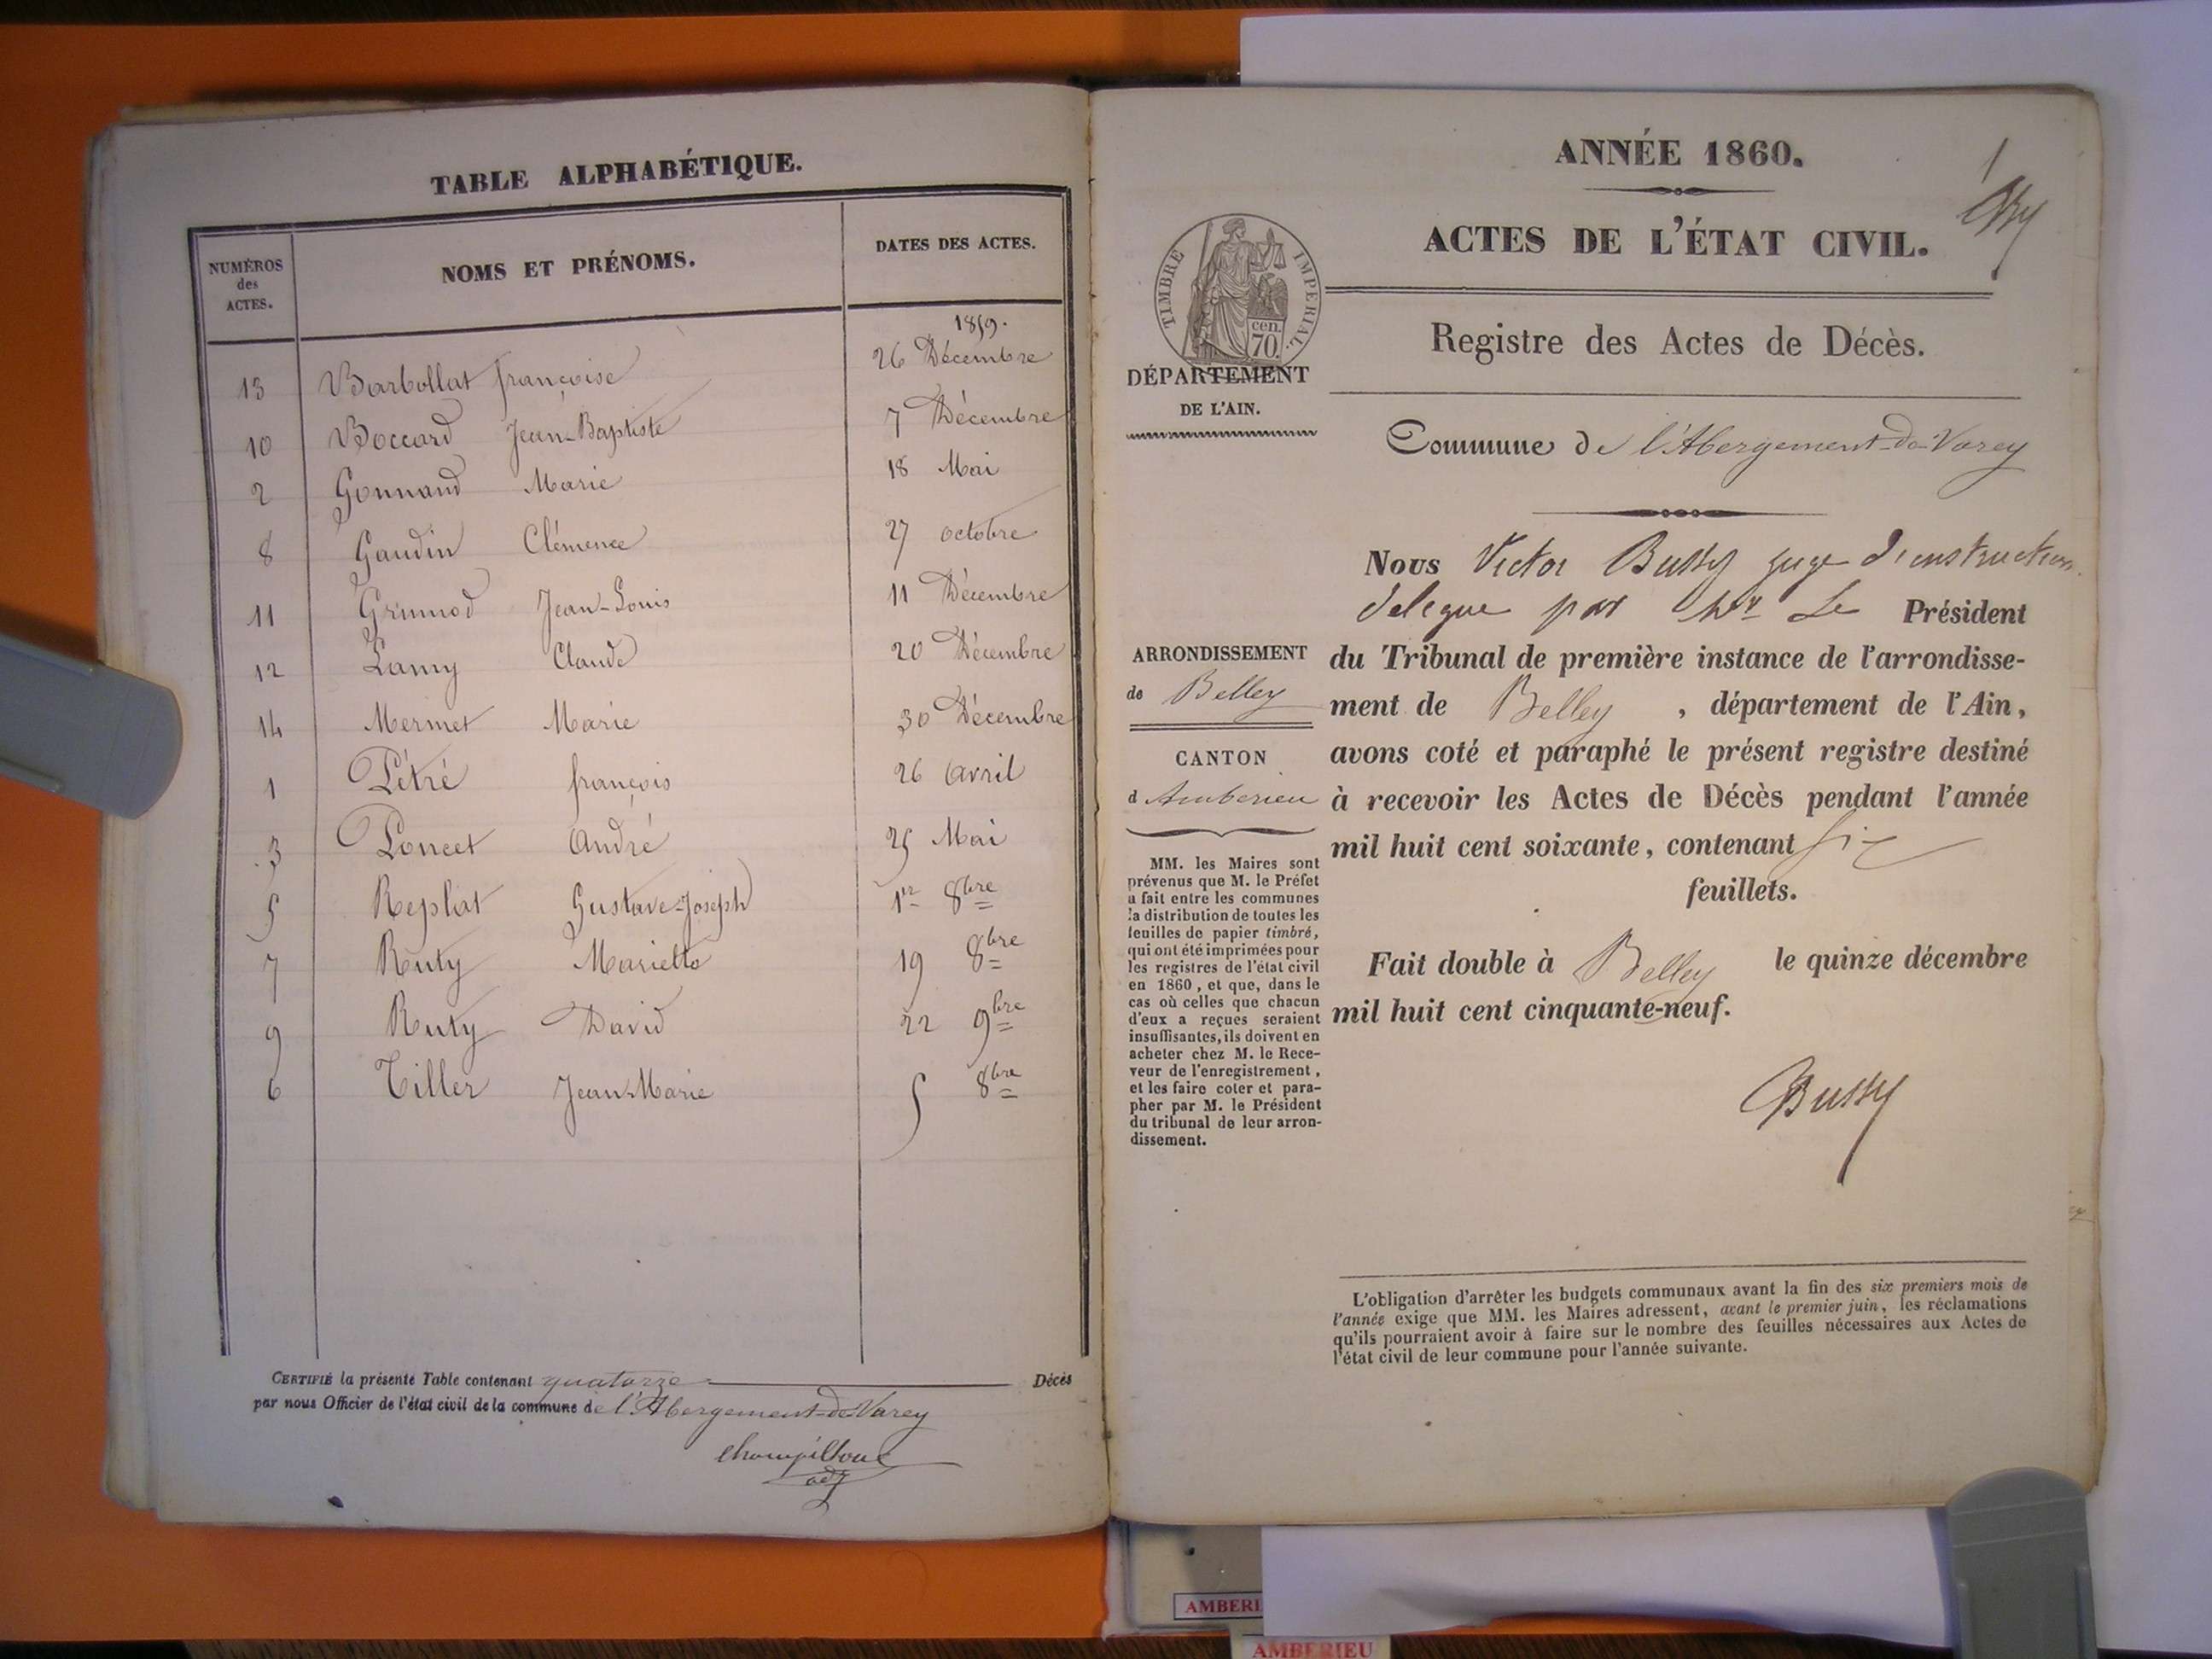 TABLE ALPHABÉTIQUE.
NUMÉROS des ACTES. NOMS ET PRÉNOMS. DATES DES ACTES.
1859.
13 Barbollat françoise 26 Décembre
10 Boccard Jean-Baptiste 7 Décembre
2 Gonnand Marie 18 Mai
8 Gaudin Clémence 27 octobre
11 Grumod Jean-Louis 11 Décembre
12 Lamy Claude 20 Décembre
14 Mermet Marie 30 Décembre
1 Pétré françois 26 avril
3 Poncet André 25 Mai
5 Replat Gustave-Joseph 1er 8bre
7 Ruty Mariette 19 8bre
9 Ruty David 22 9bre
6 Tiller Jean-Marie 5 8bre
CERTIFIÉ la présente Table contenant quatorze Décès
par nous Officier de l'état civil de la commune de l'Abergement-de-Varey
adj
ANNÉE 1860.
1
ACTES DE L'ÉTAT CIVIL.
TIMBRE IMPERIAL.
cen.
70.
Registre des Actes de Décès.
DÉPARTEMENT
DE L'AIN.
Commune de l'Abergement-de-Varey
Nous Victor Bussy juge d'instruction
delegue par Mr Le Président
du Tribunal de première instance de l'arrondisse-
ment de Belley , département de l'Ain,
avons coté et paraphé le présent registre destiné
à recevoir les Actes de Décès pendant l'année
mil huit cent soixante, contenant six
feuillets.
Fait double à Belley le quinze décembre
mil huit cent cinquante-neuf.
Bussy
ARRONDISSEMENT
de Belley
CANTON
d Amberieu
MM. les Maires sont
prévenus que M. le Préfet
a fait entre les communes
la distribution de toutes les
feuilles de papier timbré,
qui ont été imprimées pour
les registres de l'état civil
en 1860, et que, dans le
cas où celles que chacun
d'eux a reçues seraient
insuffisantes, ils doivent en
acheter chez M. le Rece-
veur de l'enregistrement,
et les faire coter et para-
pher par M. le Président
du tribunal de leur arron-
dissement.
L'obligation d'arrêter les budgets communaux avant la fin des six premiers mois de
l'année exige que MM. les Maires adressent, avant le premier juin, les réclamations
qu'ils pourraient avoir à faire sur le nombre des feuilles nécessaires aux Actes de
l'état civil de leur commune pour l'année suivante.
AMBERI
AMBERIEU